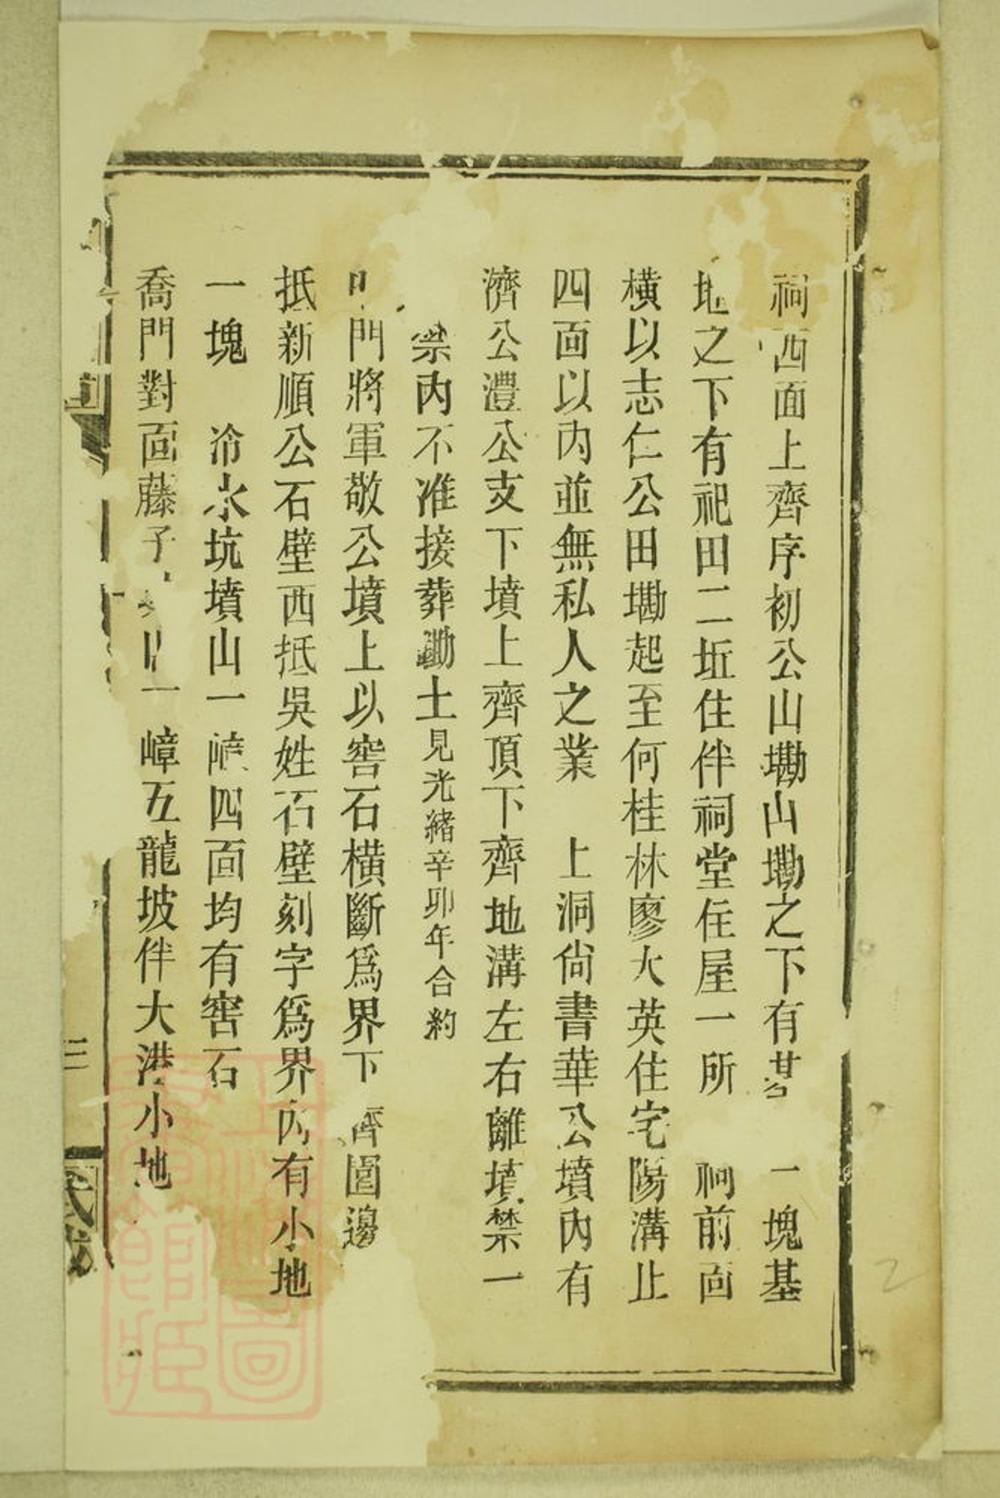 祠西面上齊序初公山墈山墈之下有基一塊基
地之下有祀田二坵住伴祠堂住屋一所 祠前面
橫以志仁公田墈起至何桂林廖大英住宅陽溝止
四面以内並無私人之業 上洞尙書華公墳内有
濟公澧公支下墳上齊頂下齊地溝左右離墳禁一
禁内不准接葬墈土見光緒辛卯年合約
門將軍敬公墳上以窖石橫斷爲界下齊圍邊
抵新順公石壁西抵吳姓石壁刻字爲界内有小地
一塊 冷水坑墳山一嶂四面均有窖石
喬門對面藤子山一嶂五龍坡伴大港小地
三